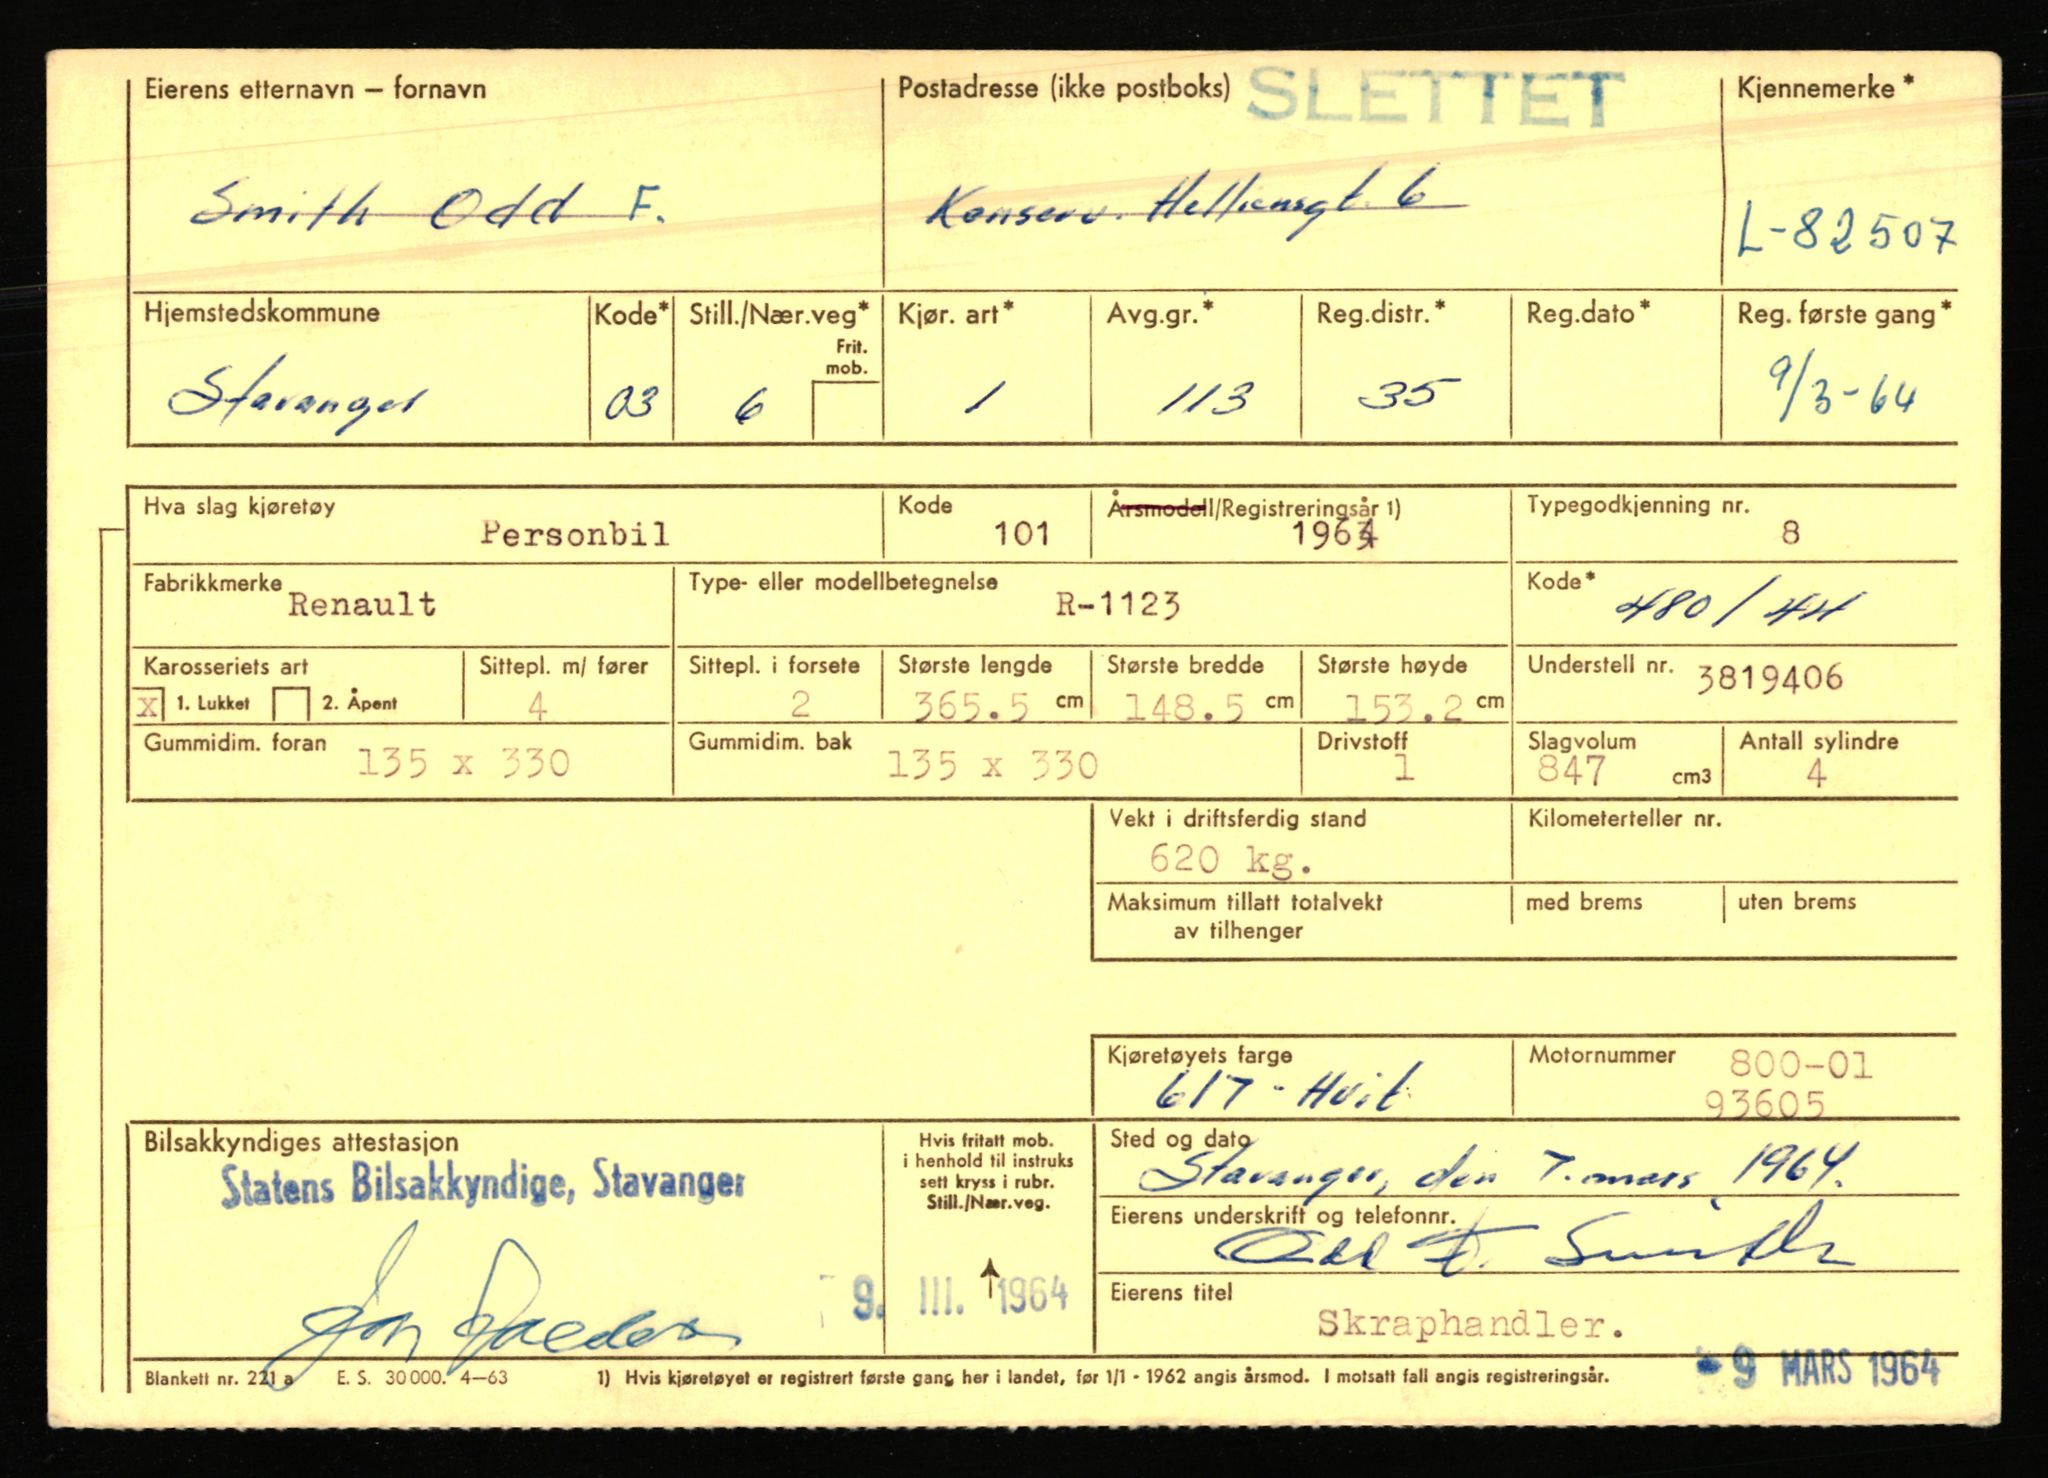 Eierens etternavn – fornavn
Postadresse (ikke postboks)
SLETTET
Kjennemerke*
Smith Odd F.
Konserv. Helliensgt. 6
L-82507
Hjemstedskommune
Kode*
Still./Nær.veg*
Kjør. art*
Avg.gr.*
Reg.distr.*
Reg.dato*
Reg. første gang*
Frit.
mob.
Stavanger
03
6
1
113
35
9/3-64
Hva slag kjøretøy
Kode
Årsmodell/Registreringsår 1)
Typegodkjenning nr.
Personbil
101
1964
8
Fabrikkmerke
Type- eller modellbetegnelse
Kode*
Renault
R-1123
480/44
Karosseriets art
Sittepl. m/ fører
Sittepl. i forsete
Største lengde
Største bredde
Største høyde
Understell nr. 3819406
X 1. Lukket
2. Åpent
4
2
365.5 cm
148.5 cm
153.2 cm
Gummidim. foran
135 x 330
Gummidim. bak
135 x 330
Drivstoff
1
Slagvolum
847 cm3
Antall sylindre
4
Vekt i driftsferdig stand
Kilometerteller nr.
620 kg.
Maksimum tillatt totalvekt
av tilhenger
med brems
uten brems
Kjøretøyets farge
617 - Hvit
Motornummer
800-01
93605
Bilsakkyndiges attestasjon
Statens Bilsakkyndige, Stavanger
Hvis fritatt mob.
i henhold til instruks
sett kryss i rubr.
Still./Nær.veg.
9. III. 1964
Sted og dato
Stavanger, den 7. mars 1964.
Eierens underskrift og telefonnr.
Odd F. Smith
Eierens titel
Skraphandler.
Blankett nr. 221 a E. S. 30 000. 4–63
1) Hvis kjøretøyet er registrert første gang her i landet, før 1/1 - 1962 angis årsmod. I motsatt fall angis registreringsår.
-9 MARS 1964